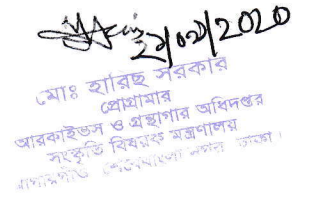 ২১/০৯/2020
মোঃ হারিছ সরকার
প্রোগ্রামার
আরকাইভস ও গ্রন্থাগার অধিদপ্তর
সংস্কৃতি বিষয়ক মন্ত্রণালয়
আগারগাঁও শেরেবাংলা নগর ঢাকা।